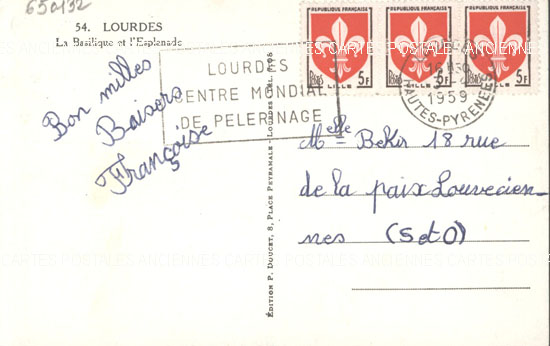 650132
54. LOURDES
La Basilique et l'Esplanade
Bon milles
Baisers
Françoise
LOURDES
CENTRE MONDIAL
DE PELERINAGE
REPUBLIQUE FRANÇAISE
POSTES 5F
LILLE
REPUBLIQUE FRANÇAISE
5F
LILLE
REPUBLIQUE FRANÇAISE
POSTES 5F
LILLE
1959
HAUTES-PYRENEES
EDITION P. DOUCET, 8, PLACE PEYRAMALE - LOURDES
Melle Bekir 18 rue
de la paix Louvecien-
nes (S et O)
CARTES POSTALES ANCIENNES CARTES POSTALES ANCIENNES